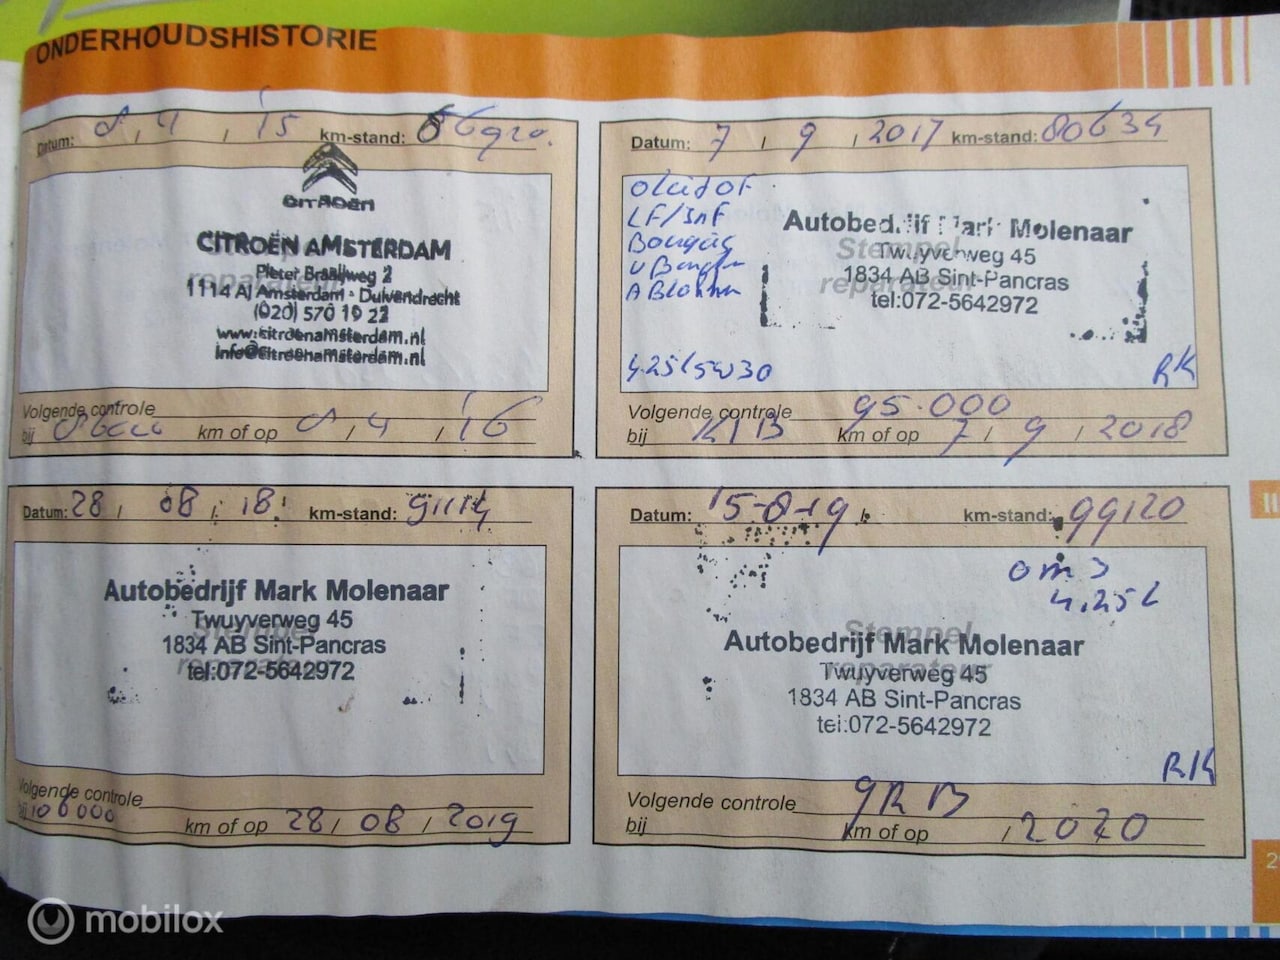 ONDERHOUDSHISTORIE
Datum: 8 / 4 / 15 km-stand: 66920.
CITROËN
CITROËN AMSTERDAM
Pieter Braaijweg 2
1114 AJ Amsterdam - Duivendrecht
(020) 570 19 22
www.citroenamsterdam.nl
info@citroenamsterdam.nl
Stempel
reparateur
Volgende controle
bij km of op 8 / 4 / 16
Datum: 7 / 9 / 2017 km-stand: 80634
LF/InF
Bougies
4.25L 5W30
Autobedrijf Mark Molenaar
Twuyverweg 45
1834 AB Sint-Pancras
tel:072-5642972
Stempel
reparateur
RK
Volgende controle 95.000
bij km of op 7 / 9 / 2018
Datum: 28 / 08 / 18 km-stand: 91114
Autobedrijf Mark Molenaar
Twuyverweg 45
1834 AB Sint-Pancras
tel:072-5642972
Stempel
reparateur
Volgende controle
bij 106000 km of op 28 / 08 / 2019
Datum: 15-8-19 km-stand: 99120
4.25L
Autobedrijf Mark Molenaar
Twuyverweg 45
1834 AB Sint-Pancras
tel:072-5642972
Stempel
reparateur
RK
Volgende controle
bij km of op / 2020
2
mobilox